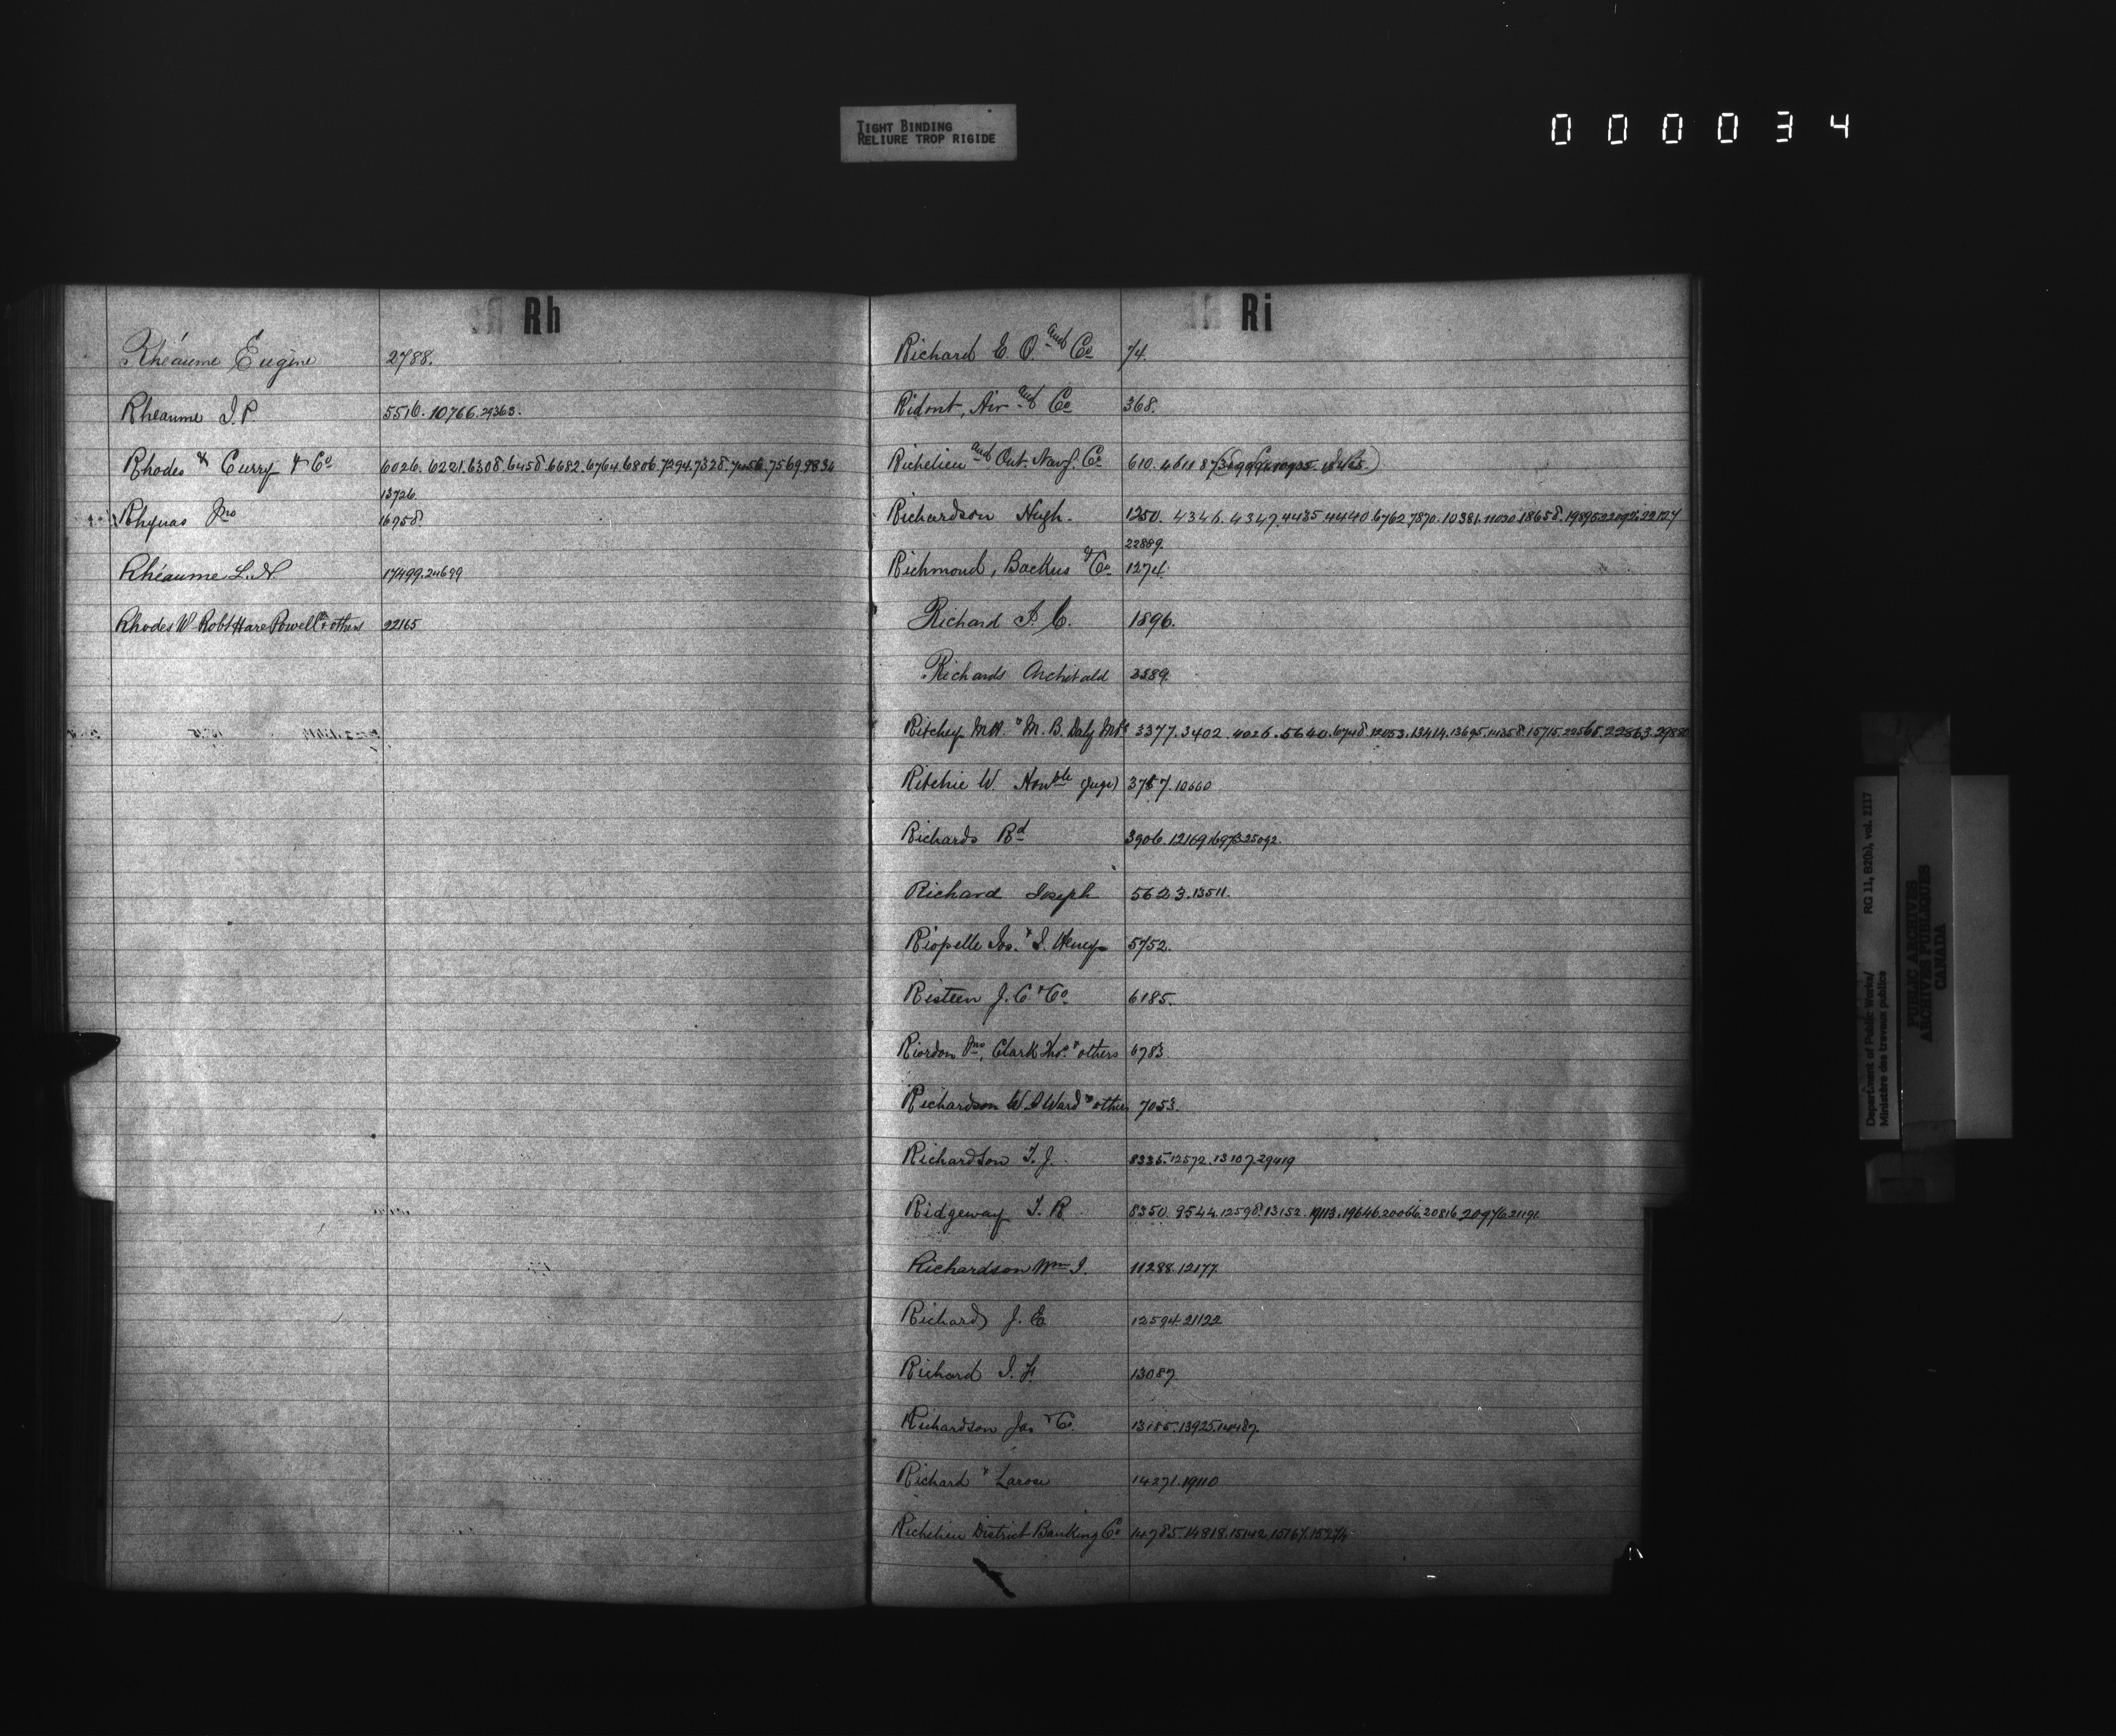 TIGHT BINDING
RELIURE TROP RIGIDE
000034
Rh
Rhéaume Eugène 2788.
Rheaume J.P. 5516. 10766. 29363.
Rhodes & Curry & Co 6026. 6221. 6308. 6458. 6682. 6764. 6806. 7294. 7328. 7569. 9834
13726.
Rhynas Jno 16958
Rhéaume L.N. 17499. 24699
Rhodes W Robt Hare Powell & others 22165
Ri
Richard E. O. and Co 74.
Ridout, Air and Co 368.
Richelieu and Ont. Navg. Co 610. 4611
Richardson Hugh. 1250. 4346. 4347. 4435. 4440. 6762. 7870. 10381. 11030. 18658. 19895. 22092. 22127
22889.
Richmond, Backus & Co 1274.
Richard J. C. 1896.
Richards Archibald 3389.
Ritchey M.H. & M. B. Daly MPs 3377. 3402. 4026. 5640. 6748. 12053. 13414. 13695. 14358. 15715. 22565. 22863. 29880
Ritchie W. Honble (Juge) 3787. 10660
Richards Rd 3906. 12169. 16973. 25092.
Richard Joseph 5623. 13511.
Riopelle Jos. & J. Henry 5752.
Risteen J. C & Co. 6185.
Riordon Jno, Clark Thos. & others 6783
Richardson W. J Ward & others 7053.
Richardson T. J. 8335. 12572. 13107. 29419
Ridgeway T. R. 8350. 9544. 12598. 13152. 19113. 19646. 20066. 20816. 20976. 21191.
Richardson Wm J. 11288. 12177.
Richard J. E. 12594. 21122
Richard J. H. 13087.
Richardson Jas & Co. 13185. 13925. 14487.
Richard & Larose 14271. 19110
Richelieu District Banking Co 14785. 14818. 15142. 15167. 15274
Department of Public Works/ RG 11, B2(b), vol. 2117
Ministère des travaux publics
PUBLIC ARCHIVES
ARCHIVES PUBLIQUES
CANADA